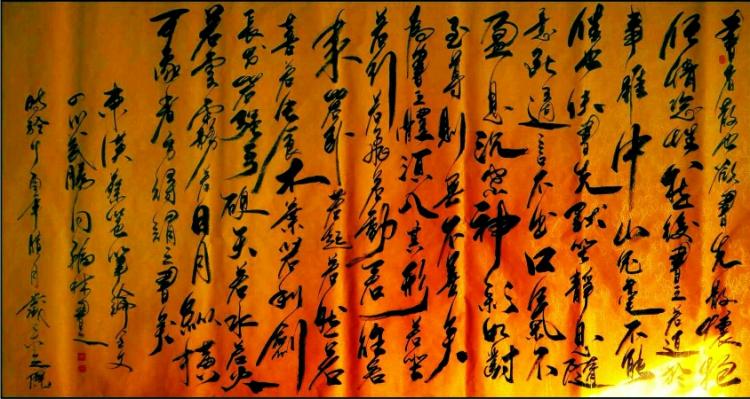 書者散也欲書先散懷抱
任情恣性然後書之若迫於
事雖中山兔毫不能
佳也夫書先默坐靜思隨
意所適言不出口氣不
盈息沉密神彩如對
至尊則無不善矣
為書之體須入其形若坐
若行若飛若動若往若
來若臥若起若愁若
喜若蟲食木葉若利劍
長戈若強弓硬矢若水若火
若雲霧若日月縱橫
可象者方得謂之書矣
東漢蔡邕筆論全文
四川武勝
丁酉年